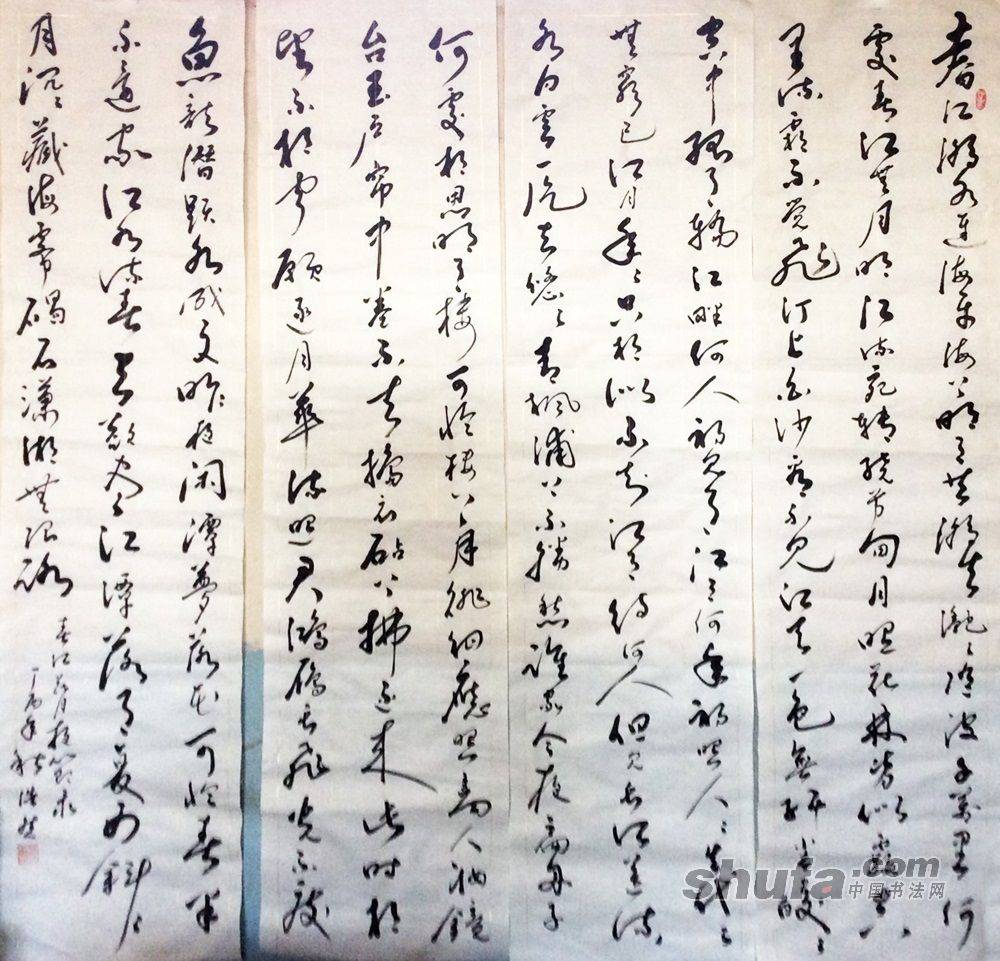 春江潮水連海平海上明月共潮生灩灩隨波千萬里何
處春江無月明江流宛轉繞芳甸月照花林皆似霰空
里流霜不覺飛汀上白沙看不見江天一色無纖塵皎皎
空中孤月輪江畔何人初見月江月何年初照人人生代代
無窮已江月年年只相似不知江月待何人但見長江送流
水白雲一片去悠悠青楓浦上不勝愁誰家今夜扁舟子
何處相思明月樓可憐樓上月徘徊應照離人妝鏡
台玉戶帘中卷不去搗衣砧上拂還來此時相
望不相聞願逐月華流照君鴻雁長飛光不度
魚龍潛躍水成文昨夜閑潭夢落花可憐春半
不還家江水流春去欲盡江潭落月復西斜斜
月沉沉藏海霧碣石瀟湘無限路
春江花月夜節錄
shufa.com
中国书法网